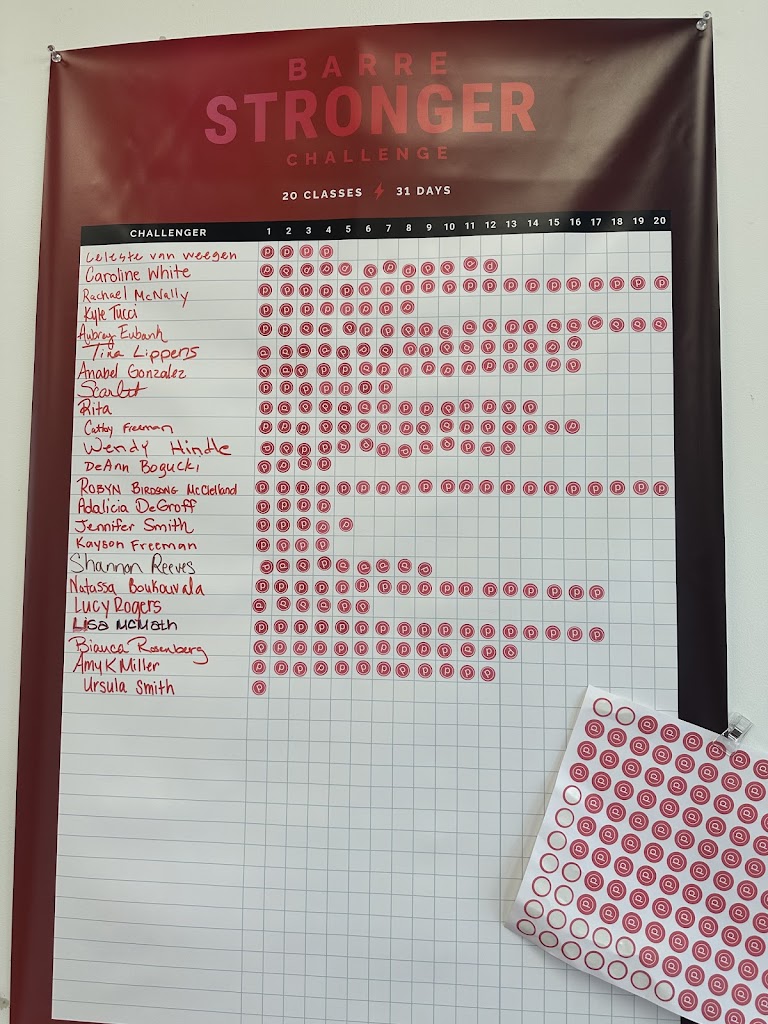 BARRE
STRONGER
CHALLENGE
20 CLASSES 31 DAYS
CHALLENGER 1 2 3 4 5 6 7 8 9 10 11 12 13 14 15 16 17 18 19 20
Celeste van Weegen
Caroline White
Rachael McNally
Kyle Tucci
Aubrey Eubank
Tina Lippens
Anabel Gonzalez
Scarlett
Rita
Cathy Freeman
Wendy Hindle
DeAnn Bogucki
ROBYN BIRDSONG McClelland
Adalicia DeGroff
Jennifer Smith
Kayson Freeman
Shannon Reeves
Natassa Boukouvala
Lucy Rogers
Lisa McMath
Bianca Rosenberg
Amy K Miller
Ursula Smith